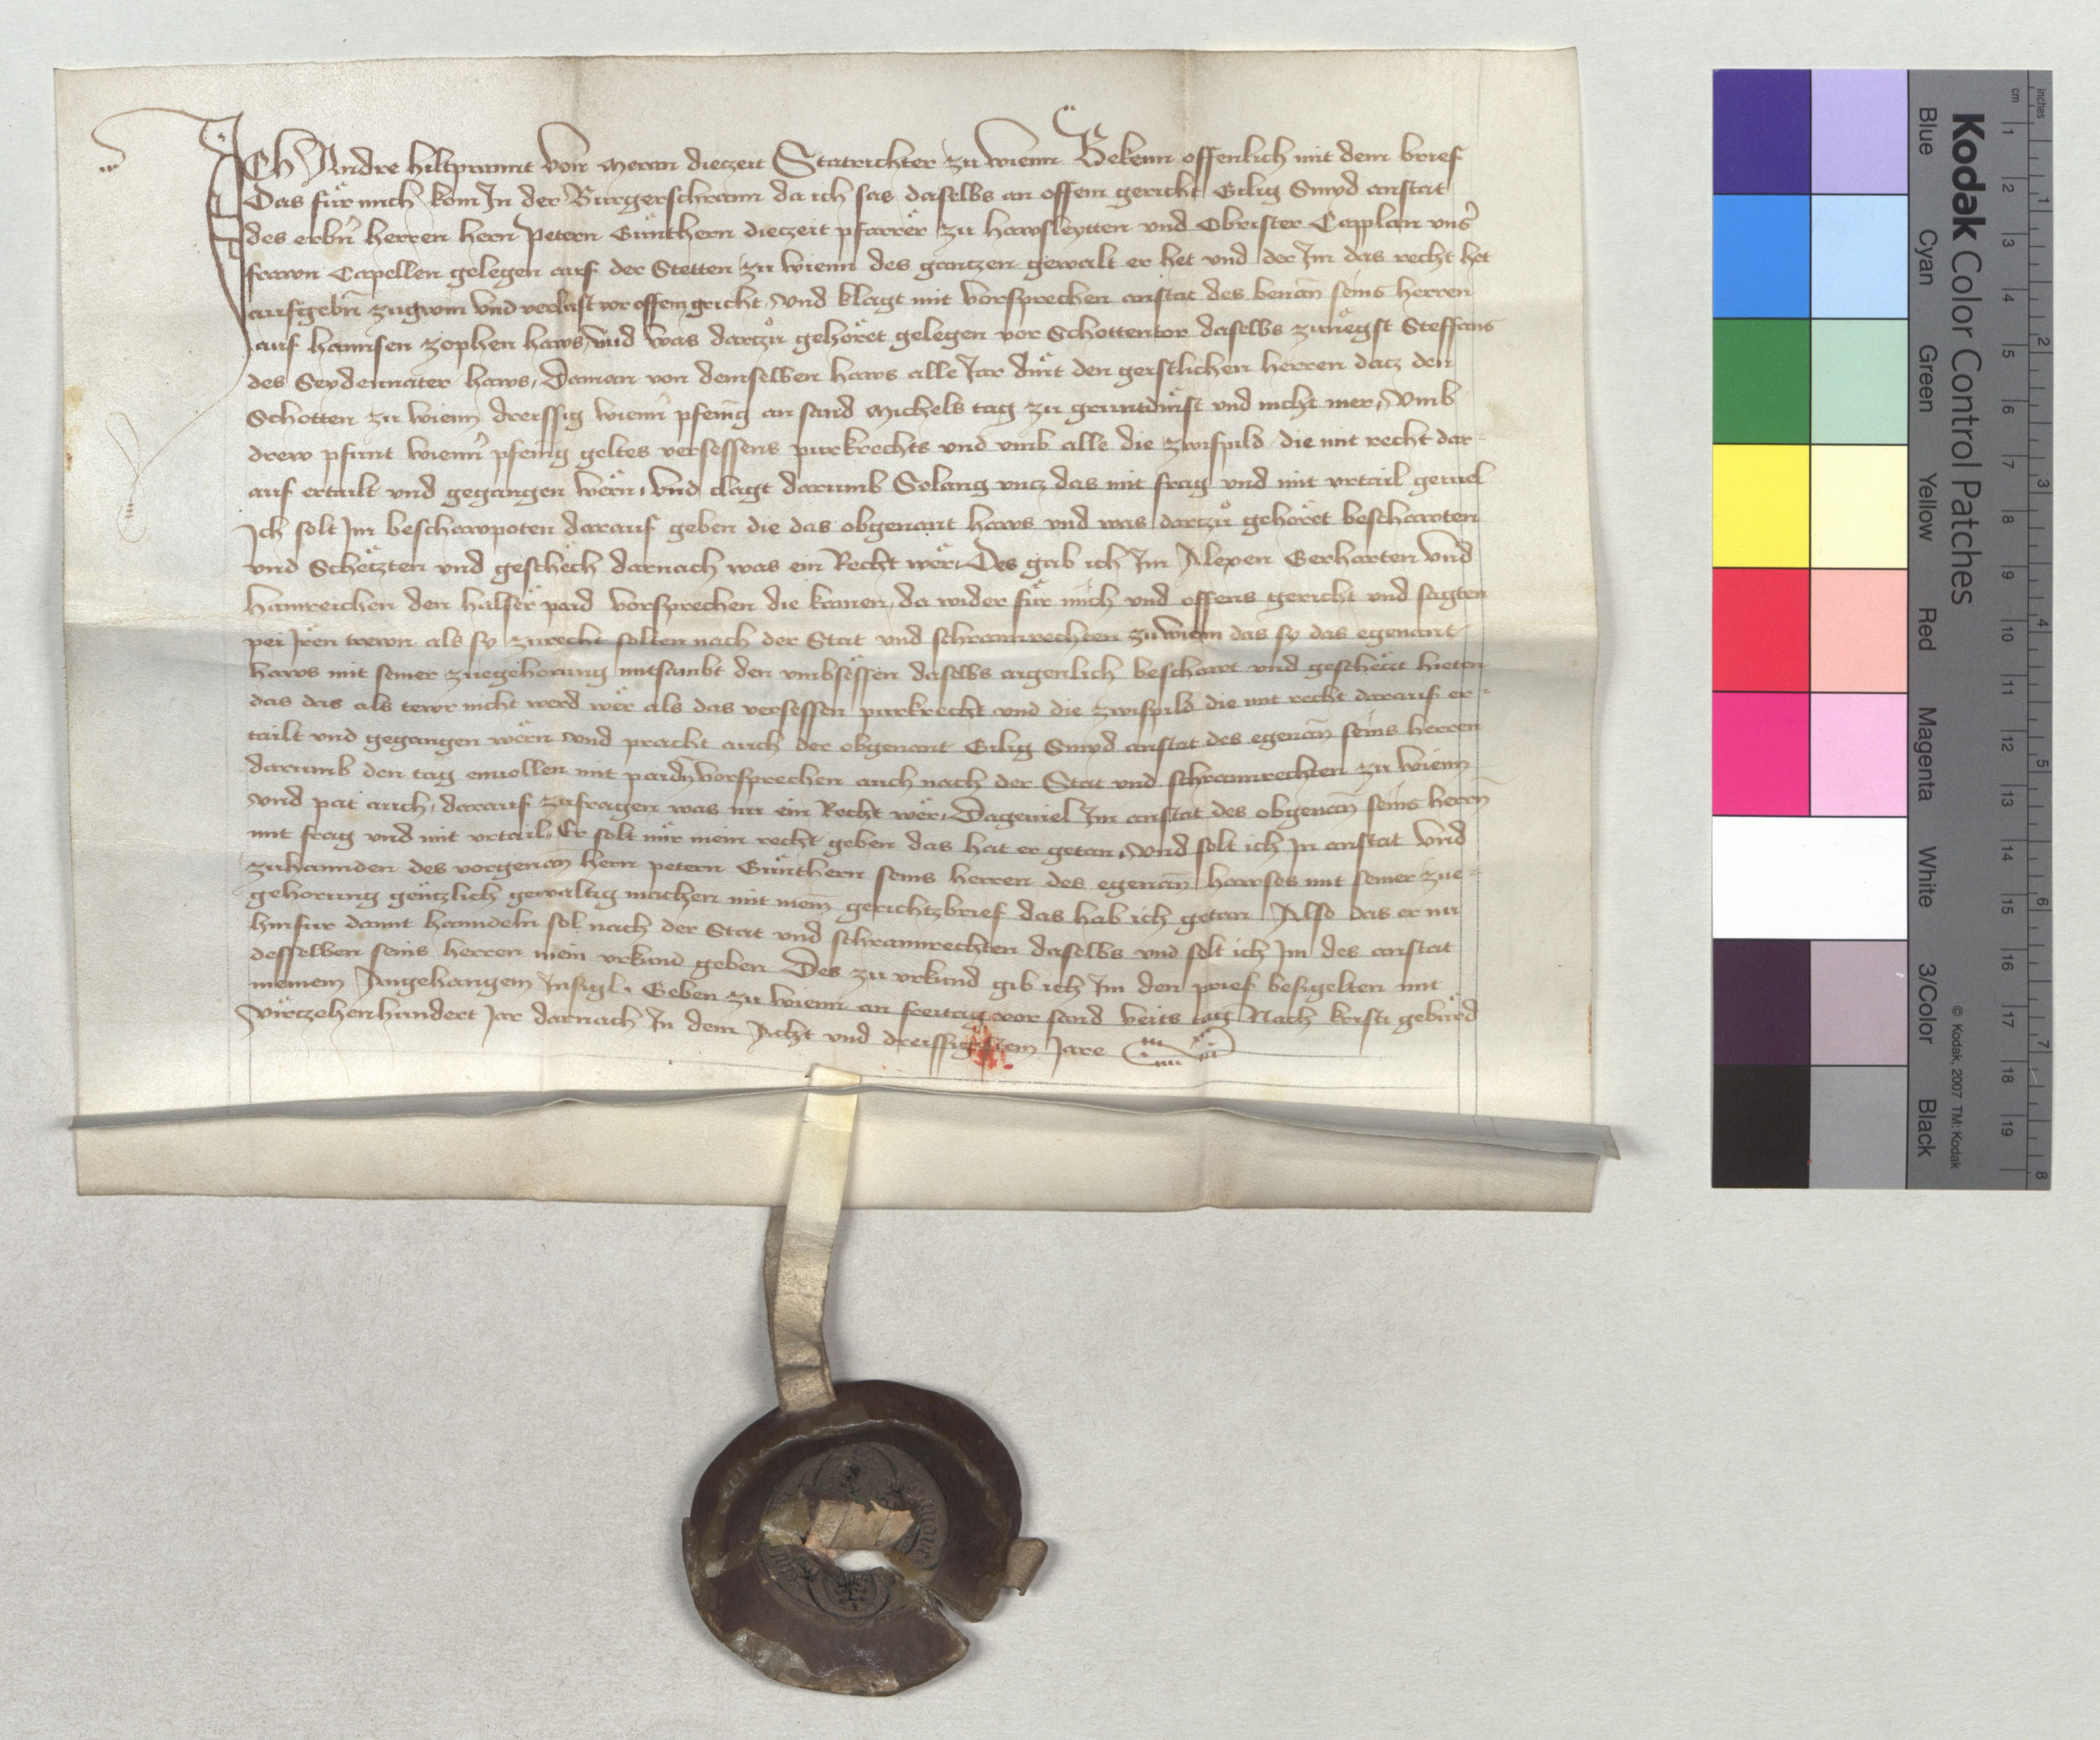 ICh Andre hiltprannt von Meran dieczeit Statrichter zu wienn Bekenn offenlich mit dem brief
Das für mich kom In der Burgerschrann da ich sas daselbs an offem gericht Gilig Smyd anstat
des erbn herren hern Petern Günthern dieczeit pfarrer zu hawsleytten und Obrister Capplan unser
frawn Capellen gelegen auf der Stetten zu wienn des gantzen gewalt er het und der Im das recht het
aufgebn zugwin und verlust vor offem gricht, und klagt mit vorsprechen anstat des benan seins herren
auf hannsen zophen haws, und was darczu gehöret gelegen vor Schottentor daselbs zunegst Steffans
des Seydennater haws, Daman von demselben haws alle Jar dint den geistlichen herren datz den
Schotten zu wienn dreissig wienner pfening an sand Michels tag zu gruntdinst und nicht mer, Umb
drew pfunt wienner pfening geltes versessens purkrechts und umb alle die zwispild die mit recht dar-
auf ertailt und gegangen wern, und clagt darumb Solang uncz das mit frag und mit urtail geviel
Ich solt Im beschawpoten darauf geben die das obgenant haws und was darczu gehöret beschawten
und Schetzten und geschech darnach was ein Recht wer, Des gab ich Im Alexen Gerharten und
hannreichen den halser paid vorsprechen die komen, da wider für mich und offens gericht und sagten
pei Iren trewn als sy zurecht sollen nach der Stat und schrannrechten zu wienn das sy das egenant
haws mit seiner zuegehorung mitsambt den umbsessen daselbs aigenlich beschawt und geschetzt hieten
das das als tewr nicht werd wer als das versessen purkrecht und die zwispild die mit recht darauf er-
tailt und gegangen wern und pracht auch der obgenant Gilig Smyd anstat des egenan seins herren
darumb den tag envollen mit paidn vorsprechen auch nach der Stat und schrannrechten zu wienn
und pat auch, darauf zufragen was nu ein Recht wer, Dageviel Im anstat des obgenan seins herrn
mit frag und mit urtail, Er solt mir mein recht geben das hat er getan, und solt ich In anstat und
zuhannden des vorgenan hern petern Günthern seins herren des egenan hawses mit seiner zue-
gehorung gentzlich gewaltig machen mit meim gerichtzbrief das hab ich getan Also das er nu
hinfur damit hanndeln sol nach der Stat und schrannrechten daselbs und solt ich Im des anstat
desselben seins herren mein urkund geben Des zu urkund gib ich Im den prief besigelten mit
meinem Anngehangem Insigl. Geben zu wienn an freitag vor sand veits tag Nach kristi gebürd
virtzehenhundert Jar darnach In dem Acht und dreissigistem Jare
Kodak Color Control Patches
Blue Cyan Green Yellow Red Magenta White 3/Color Black
© Kodak, 2007 TM: Kodak
cm 1 2 3 4 5 6 7 8 9 10 11 12 13 14 15 16 17 18 19
inches 1 2 3 4 5 6 7 8